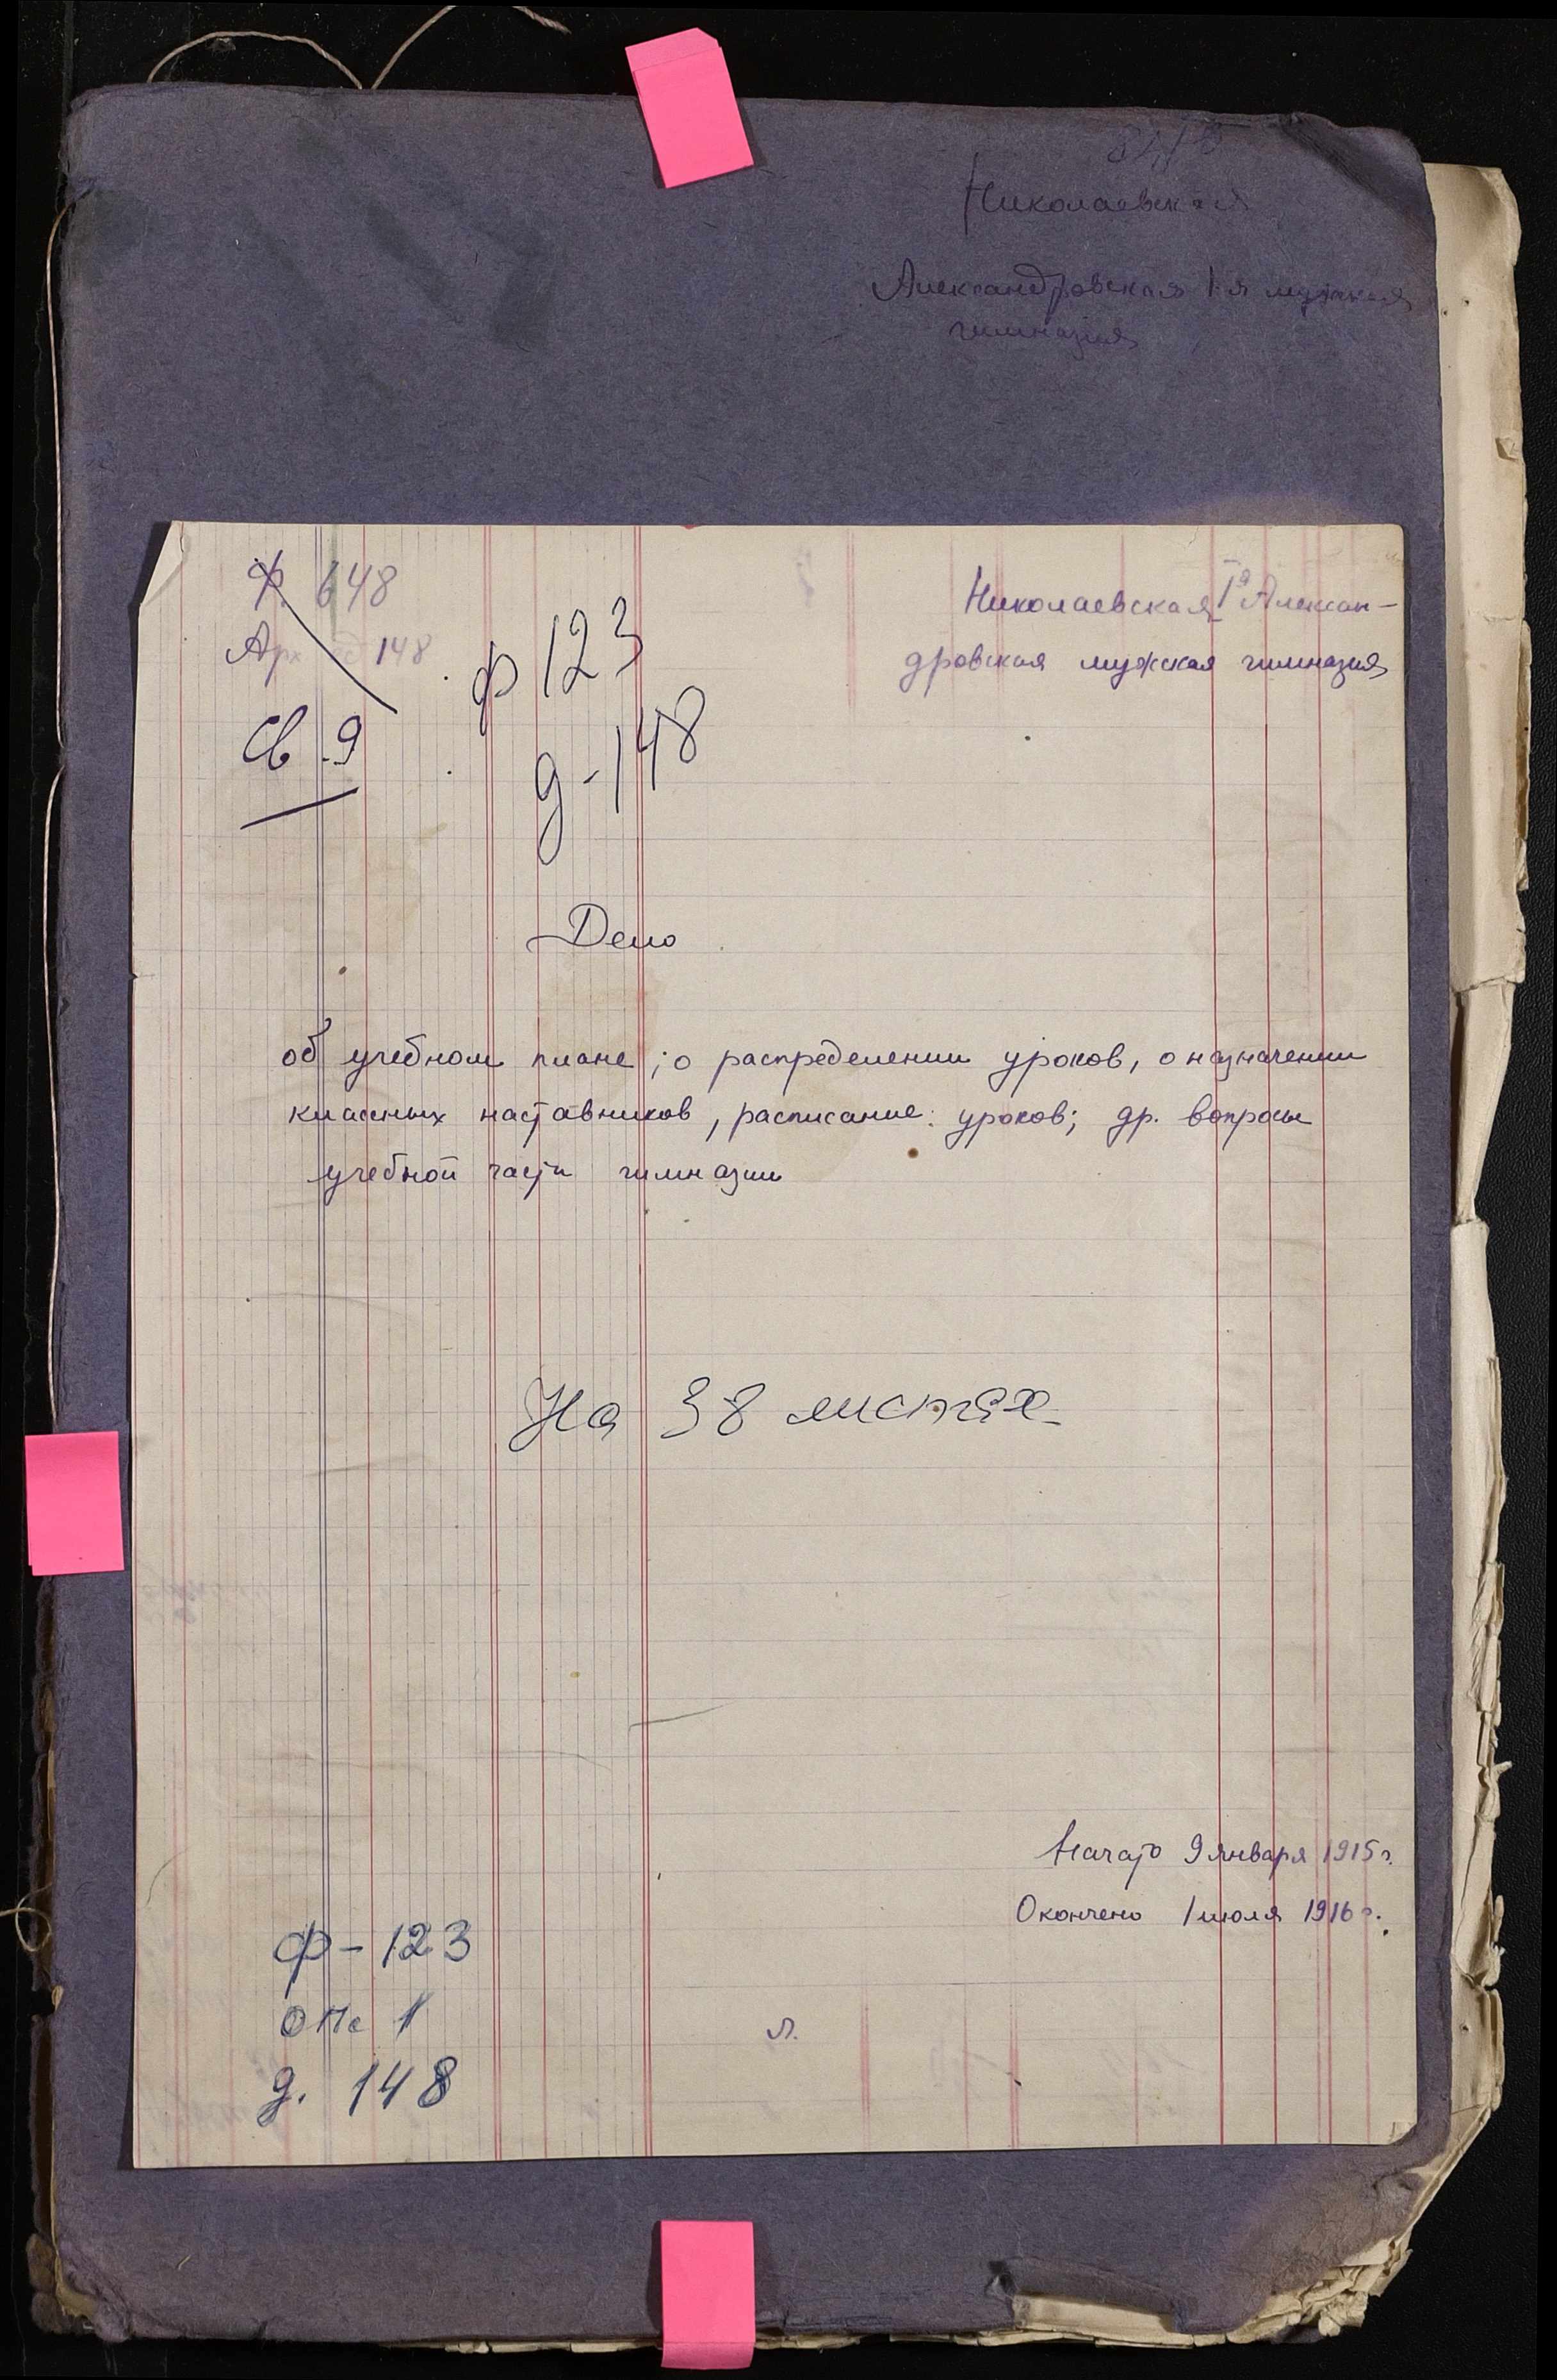 Николаевская
Александровская 1-я мужская
гимназия
Ф. 648
Арх 148
Св. 9
ф 123
д-148
Николаевская Iя Алексан-
дровская мужская гимназия
Дело
об учебном плане; о распределении уроков, о назначении
классных наставников, расписание уроков; др. вопросы
учебной части гимназии
На 38 листах
Начато 9 января 1915 г.
Окончено 1 июля 1916 г.
ф-123
оп. 1
д. 148
л.